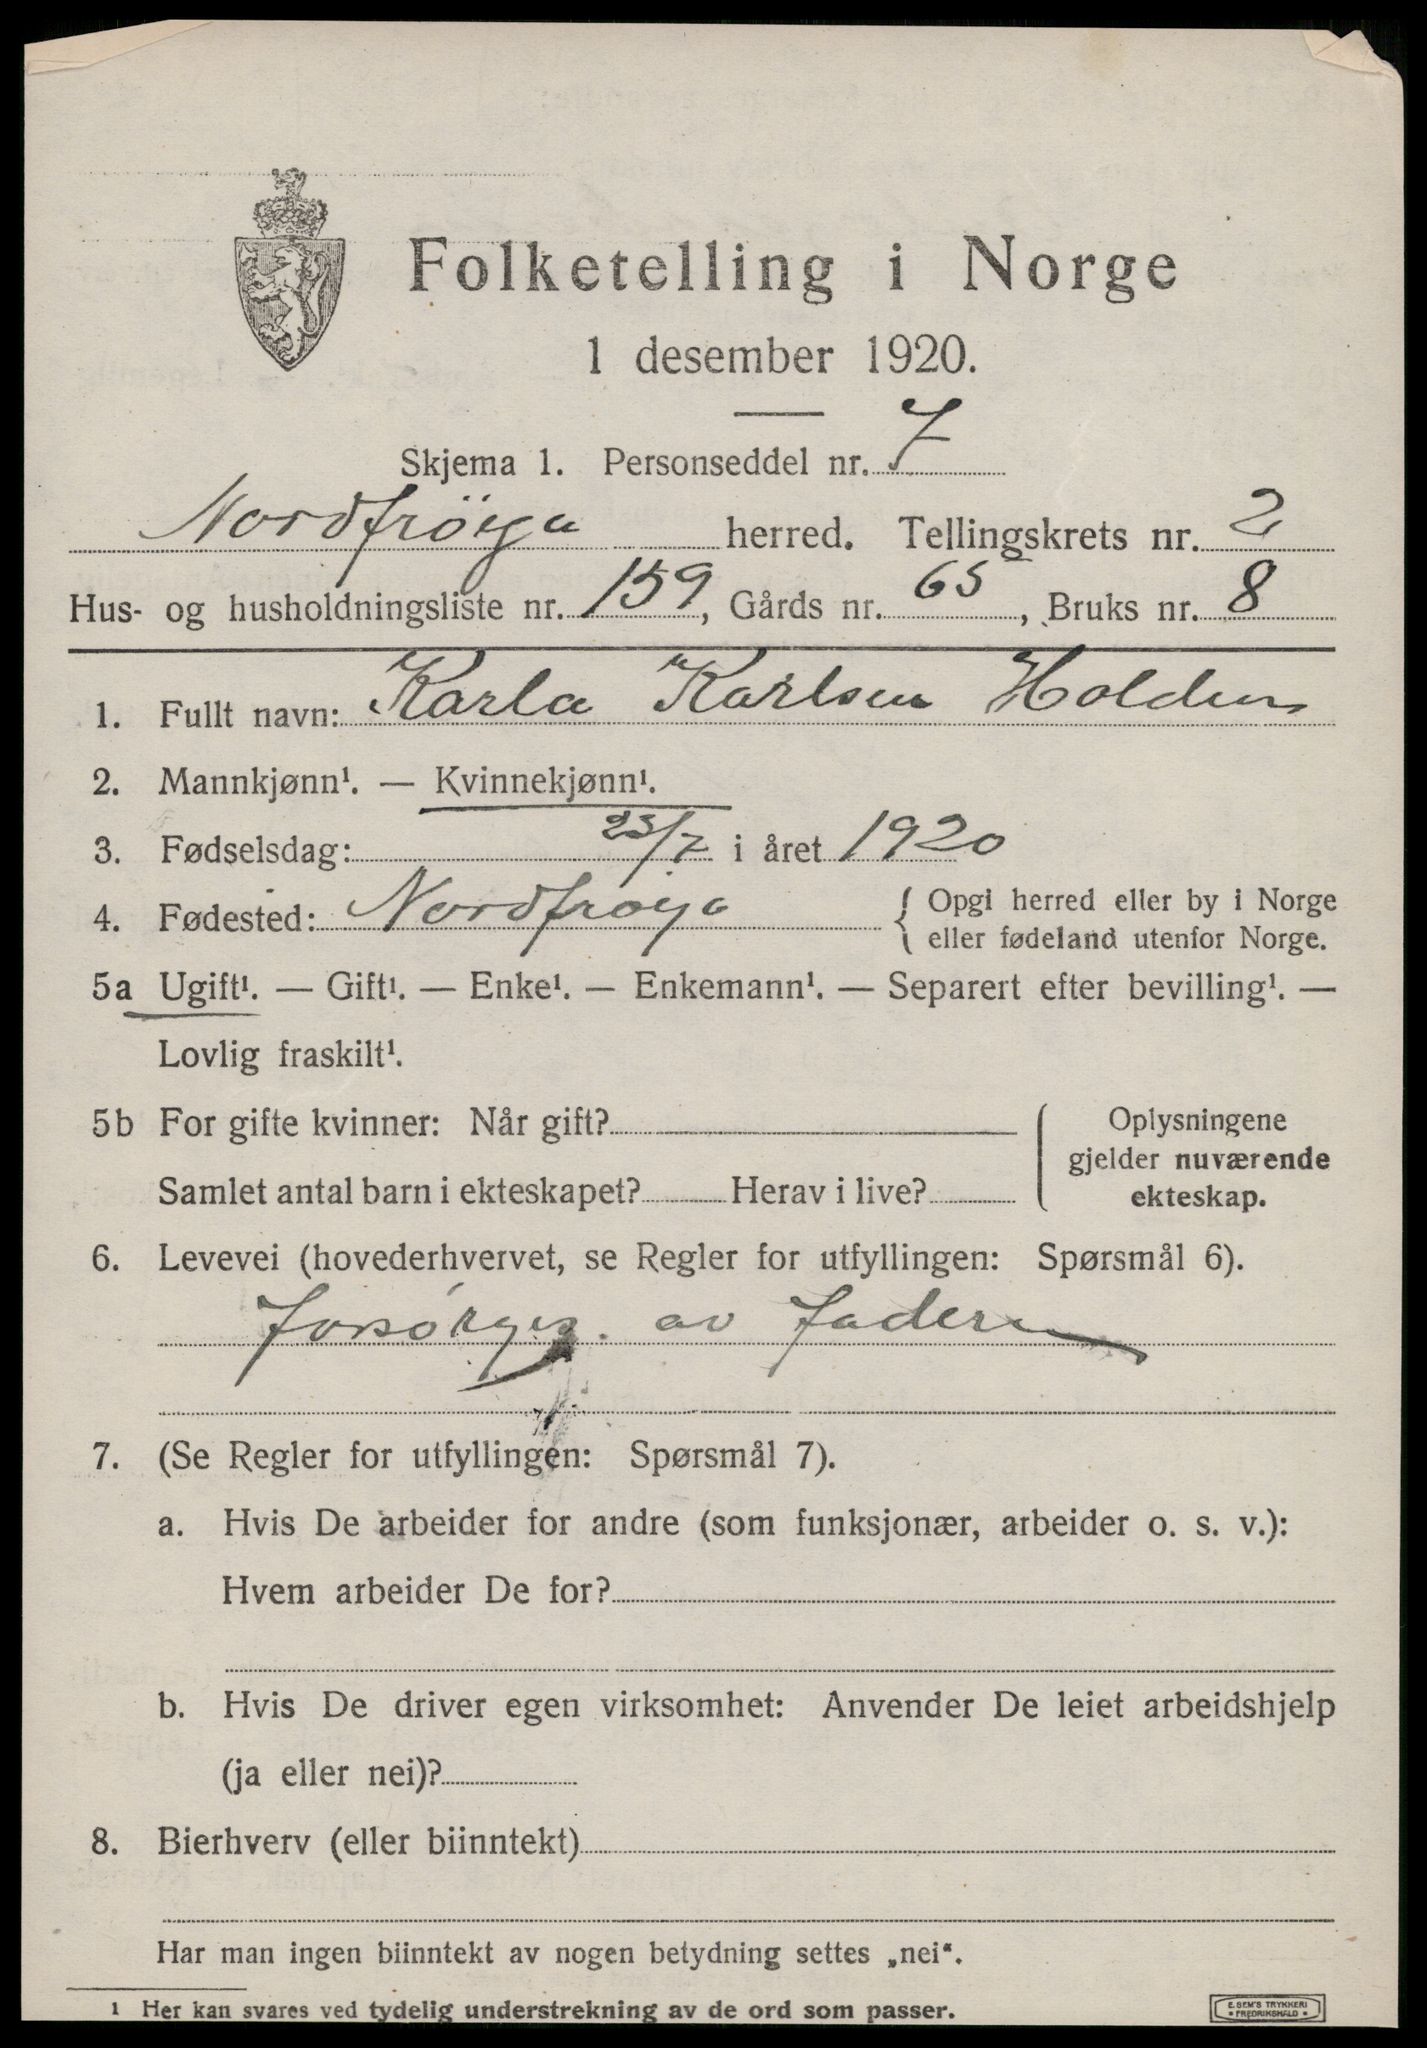 Folketelling i Norge
1 desember 1920.
Skjema 1. Personseddel nr. 7
Nordfröya herred. Tellingskrets nr. 2
Hus- og husholdningsliste nr. 159, Gårds nr. 65, Bruks nr. 8
1. Fullt navn: Karla Karlsen Holden
2. Mannkjønn¹. — Kvinnekjønn¹.
3. Fødselsdag: 23/7 i året 1920
4. Fødested: Nordfrøya { Opgi herred eller by i Norge
eller fødeland utenfor Norge.
5a Ugift¹. — Gift¹. — Enke¹. — Enkemann¹. — Separert efter bevilling¹. —
Lovlig fraskilt¹.
5b For gifte kvinner: Når gift? ( Oplysningene
gjelder nuværende
Samlet antal barn i ekteskapet? Herav i live? ekteskap.
6. Levevei (hovederhvervet, se Regler for utfyllingen: Spørsmål 6).
Forsørges. av Faderen
7. (Se Regler for utfyllingen: Spørsmål 7).
a. Hvis De arbeider for andre (som funksjonær, arbeider o. s. v.):
Hvem arbeider De for?
b. Hvis De driver egen virksomhet: Anvender De leiet arbeidshjelp
(ja eller nei)?
8. Bierhverv (eller biinntekt)
Har man ingen biinntekt av nogen betydning settes „nei“.
1 Her kan svares ved tydelig understrekning av de ord som passer.
E. SEM'S TRYKKERI
• FREDRIKSHALD •